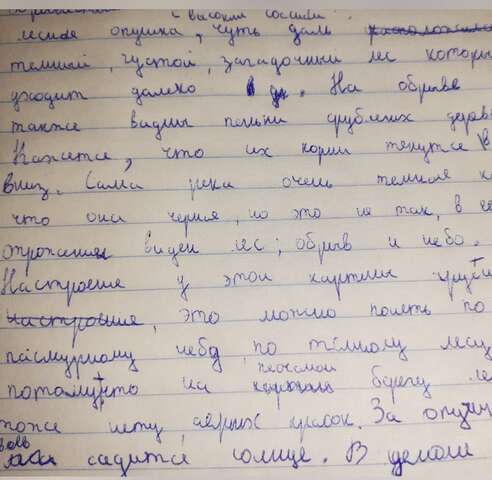 с высокими соснами
лесная опушка, чуть даль
темный, густой, загадочный лес которы
уходит далеко в . На обрыве
также видны пеньки срубленых дерев
Кажется, что их корни тянутся в
вниз. Сама река очень темная к
что она черная, но это не так, в ее
отражении виден лес, обрыв и небо.
Настроение у этой картины грустн
настроение, это можно понять по
пасмурному небу, по тёмному лесу
песчаном
потому что на берегу ле
тоже нету, ярких красок. За опушк
садится солнце. В целом